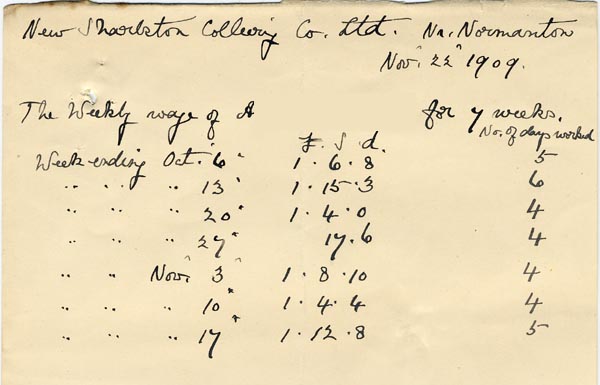 New Sharlston Colliery Co. Ltd. Nr. Normanton
Nov. 22" 1909.
The Weekly wage of A for 7 weeks.
£. S. d. No. of days worked
Week ending Oct. 6" 1 . 6 . 8 5
" " " 13" 1 . 15 . 3 6
" " " 20" 1 . 4 . 0 4
" " " 27" 17 . 6 4
" " Nov. 3" 1 . 8 . 10 4
" " " 10" 1 . 4 . 4 4
" " " 17" 1 . 12 . 8 5